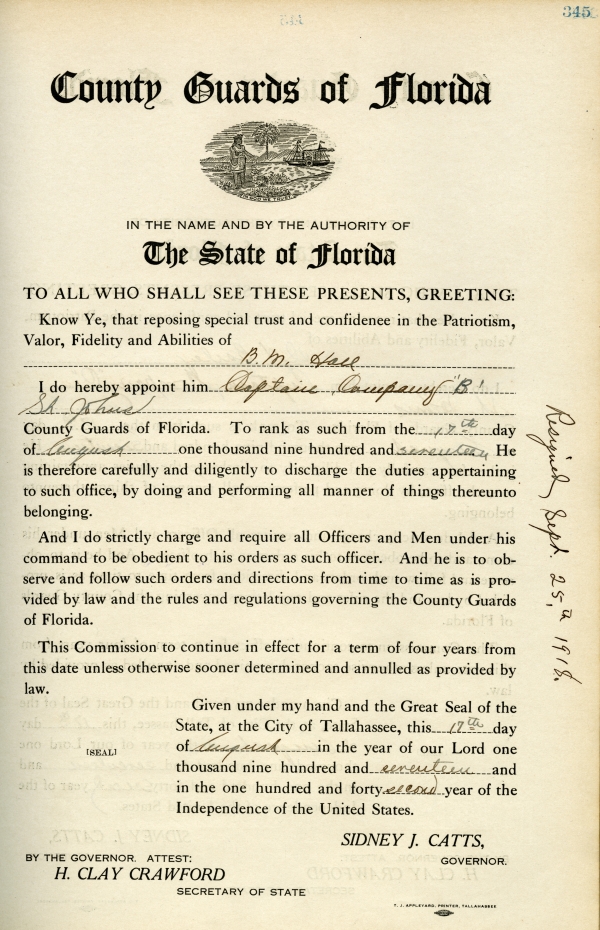 345
County Guards of Florida
IN THE NAME AND BY THE AUTHORITY OF
The State of Florida
TO ALL WHO SHALL SEE THESE PRESENTS, GREETING:
Know Ye, that reposing special trust and confidenee in the Patriotism,
Valor, Fidelity and Abilities of
B. M. Hall
I do hereby appoint him Captain Company "B"
St Johns
County Guards of Florida. To rank as such from the 17th day
of August one thousand nine hundred and seventeen He
is therefore carefully and diligently to discharge the duties appertaining
to such office, by doing and performing all manner of things thereunto
belonging.
And I do strictly charge and require all Officers and Men under his
command to be obedient to his orders as such officer. And he is to ob-
serve and follow such orders and directions from time to time as is pro-
vided by law and the rules and regulations governing the County Guards
of Florida.
This Commission to continue in effect for a term of four years from
this date unless otherwise sooner determined and annulled as provided by
law.
Given under my hand and the Great Seal of the
State, at the City of Tallahassee, this 17th day
[SEAL] of August in the year of our Lord one
thousand nine hundred and seventeen and
in the one hundred and forty second year of the
Independence of the United States.
SIDNEY J. CATTS,
GOVERNOR.
BY THE GOVERNOR. ATTEST:
H. CLAY CRAWFORD
SECRETARY OF STATE
T. J. APPLEYARD, PRINTER, TALLAHASSEE
Resigned Sept. 25th 1918.